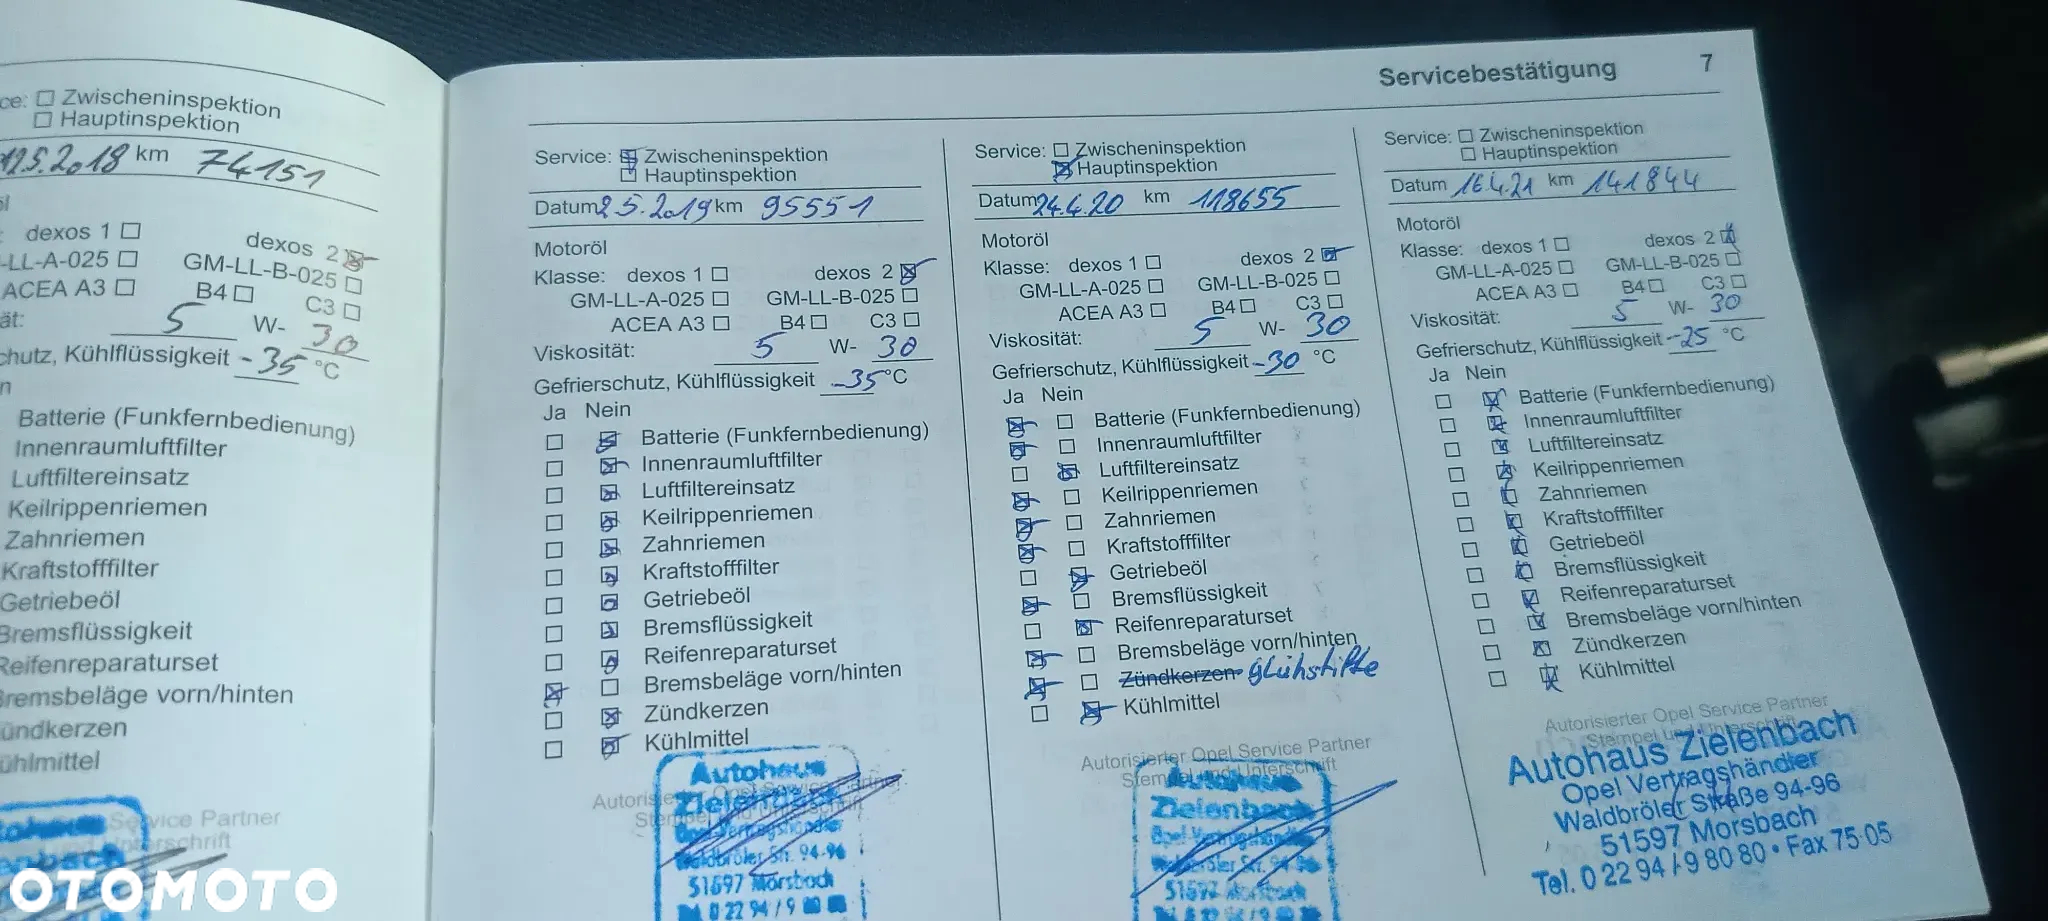 Servicebestätigung 7
ce: Zwischeninspektion
Hauptinspektion
12.5.2018 km 74151
dexos 1 dexos 2
-LL-A-025 GM-LL-B-025
ACEA A3 B4 C3
ät: 5 W- 30
chutz, Kühlflüssigkeit -35 °C
n
Batterie (Funkfernbedienung)
Innenraumluftfilter
Luftfiltereinsatz
Keilrippenriemen
Zahnriemen
Kraftstofffilter
Getriebeöl
Bremsflüssigkeit
Reifenreparaturset
Bremsbeläge vorn/hinten
ündkerzen
ühlmittel
Service Partner
OTOMOTO
Service: Zwischeninspektion
Hauptinspektion
Datum 2.5.2019 km 95551
Motoröl
Klasse: dexos 1 dexos 2
GM-LL-A-025 GM-LL-B-025
ACEA A3 B4 C3
Viskosität: 5 W- 30
Gefrierschutz, Kühlflüssigkeit -35 °C
Ja Nein
Batterie (Funkfernbedienung)
Innenraumluftfilter
Luftfiltereinsatz
Keilrippenriemen
Zahnriemen
Kraftstofffilter
Getriebeöl
Bremsflüssigkeit
Reifenreparaturset
Bremsbeläge vorn/hinten
Zündkerzen
Kühlmittel
Autohaus
Zielenbach
Opel-Vertragshändler
Waldbröler Str. 94-96
51597 Morsbach
0 22 94 / 9
Service: Zwischeninspektion
Hauptinspektion
Datum 24.4.20 km 118655
Motoröl
Klasse: dexos 1 dexos 2
GM-LL-A-025 GM-LL-B-025
ACEA A3 B4 C3
Viskosität: 5 W- 30
Gefrierschutz, Kühlflüssigkeit -30 °C
Ja Nein
Batterie (Funkfernbedienung)
Innenraumluftfilter
Luftfiltereinsatz
Keilrippenriemen
Zahnriemen
Kraftstofffilter
Getriebeöl
Bremsflüssigkeit
Reifenreparaturset
Bremsbeläge vorn/hinten
Zündkerzen Glühstifte
Kühlmittel
Autorisierter Opel Service Partner
Stempel und Unterschrift
Autohaus
Zielenbach
Opel-Vertragshändler
51597 Morsbach
Service: Zwischeninspektion
Hauptinspektion
Datum 16.4.21 km 141844
Motoröl
Klasse: dexos 1 dexos 2
GM-LL-A-025 GM-LL-B-025
ACEA A3 B4 C3
Viskosität: 5 W- 30
Gefrierschutz, Kühlflüssigkeit -25 °C
Ja Nein
Batterie (Funkfernbedienung)
Innenraumluftfilter
Luftfiltereinsatz
Keilrippenriemen
Zahnriemen
Kraftstofffilter
Getriebeöl
Bremsflüssigkeit
Reifenreparaturset
Bremsbeläge vorn/hinten
Zündkerzen
Kühlmittel
Autorisierter Opel Service Partner
Stempel und Unterschrift
Autohaus Zielenbach
Opel Vertragshändler
Waldbröler Straße 94-96
51597 Morsbach
Tel. 0 22 94 / 9 80 80 • Fax 75 05